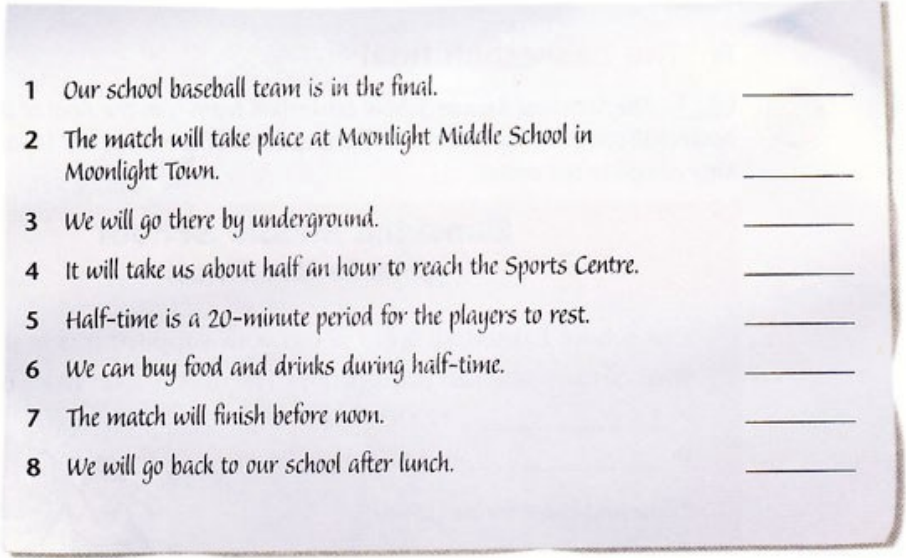 1 Our school baseball team is in the final.
2 The match will take place at Moonlight Middle School in
Moonlight Town.
3 We will go there by underground.
4 It will take us about half an hour to reach the Sports Centre.
5 Half-time is a 20-minute period for the players to rest.
6 We can buy food and drinks during half-time.
7 The match will finish before noon.
8 We will go back to our school after lunch.